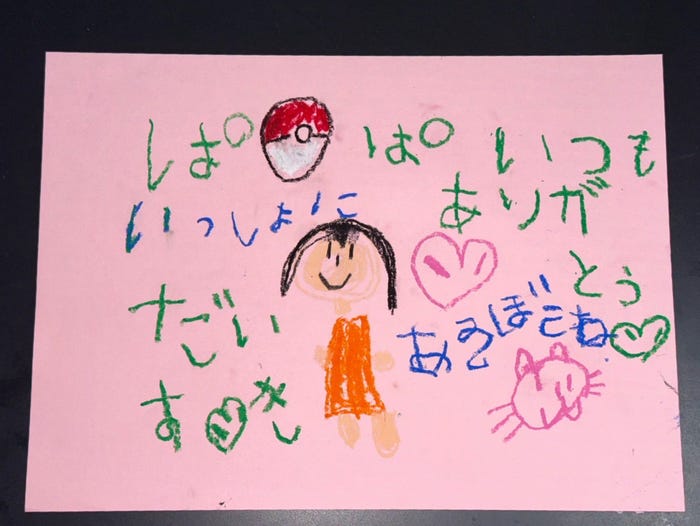 ぱ ぱ いつも
ありがとう
いっしょに
あそぼうね
だい
すき